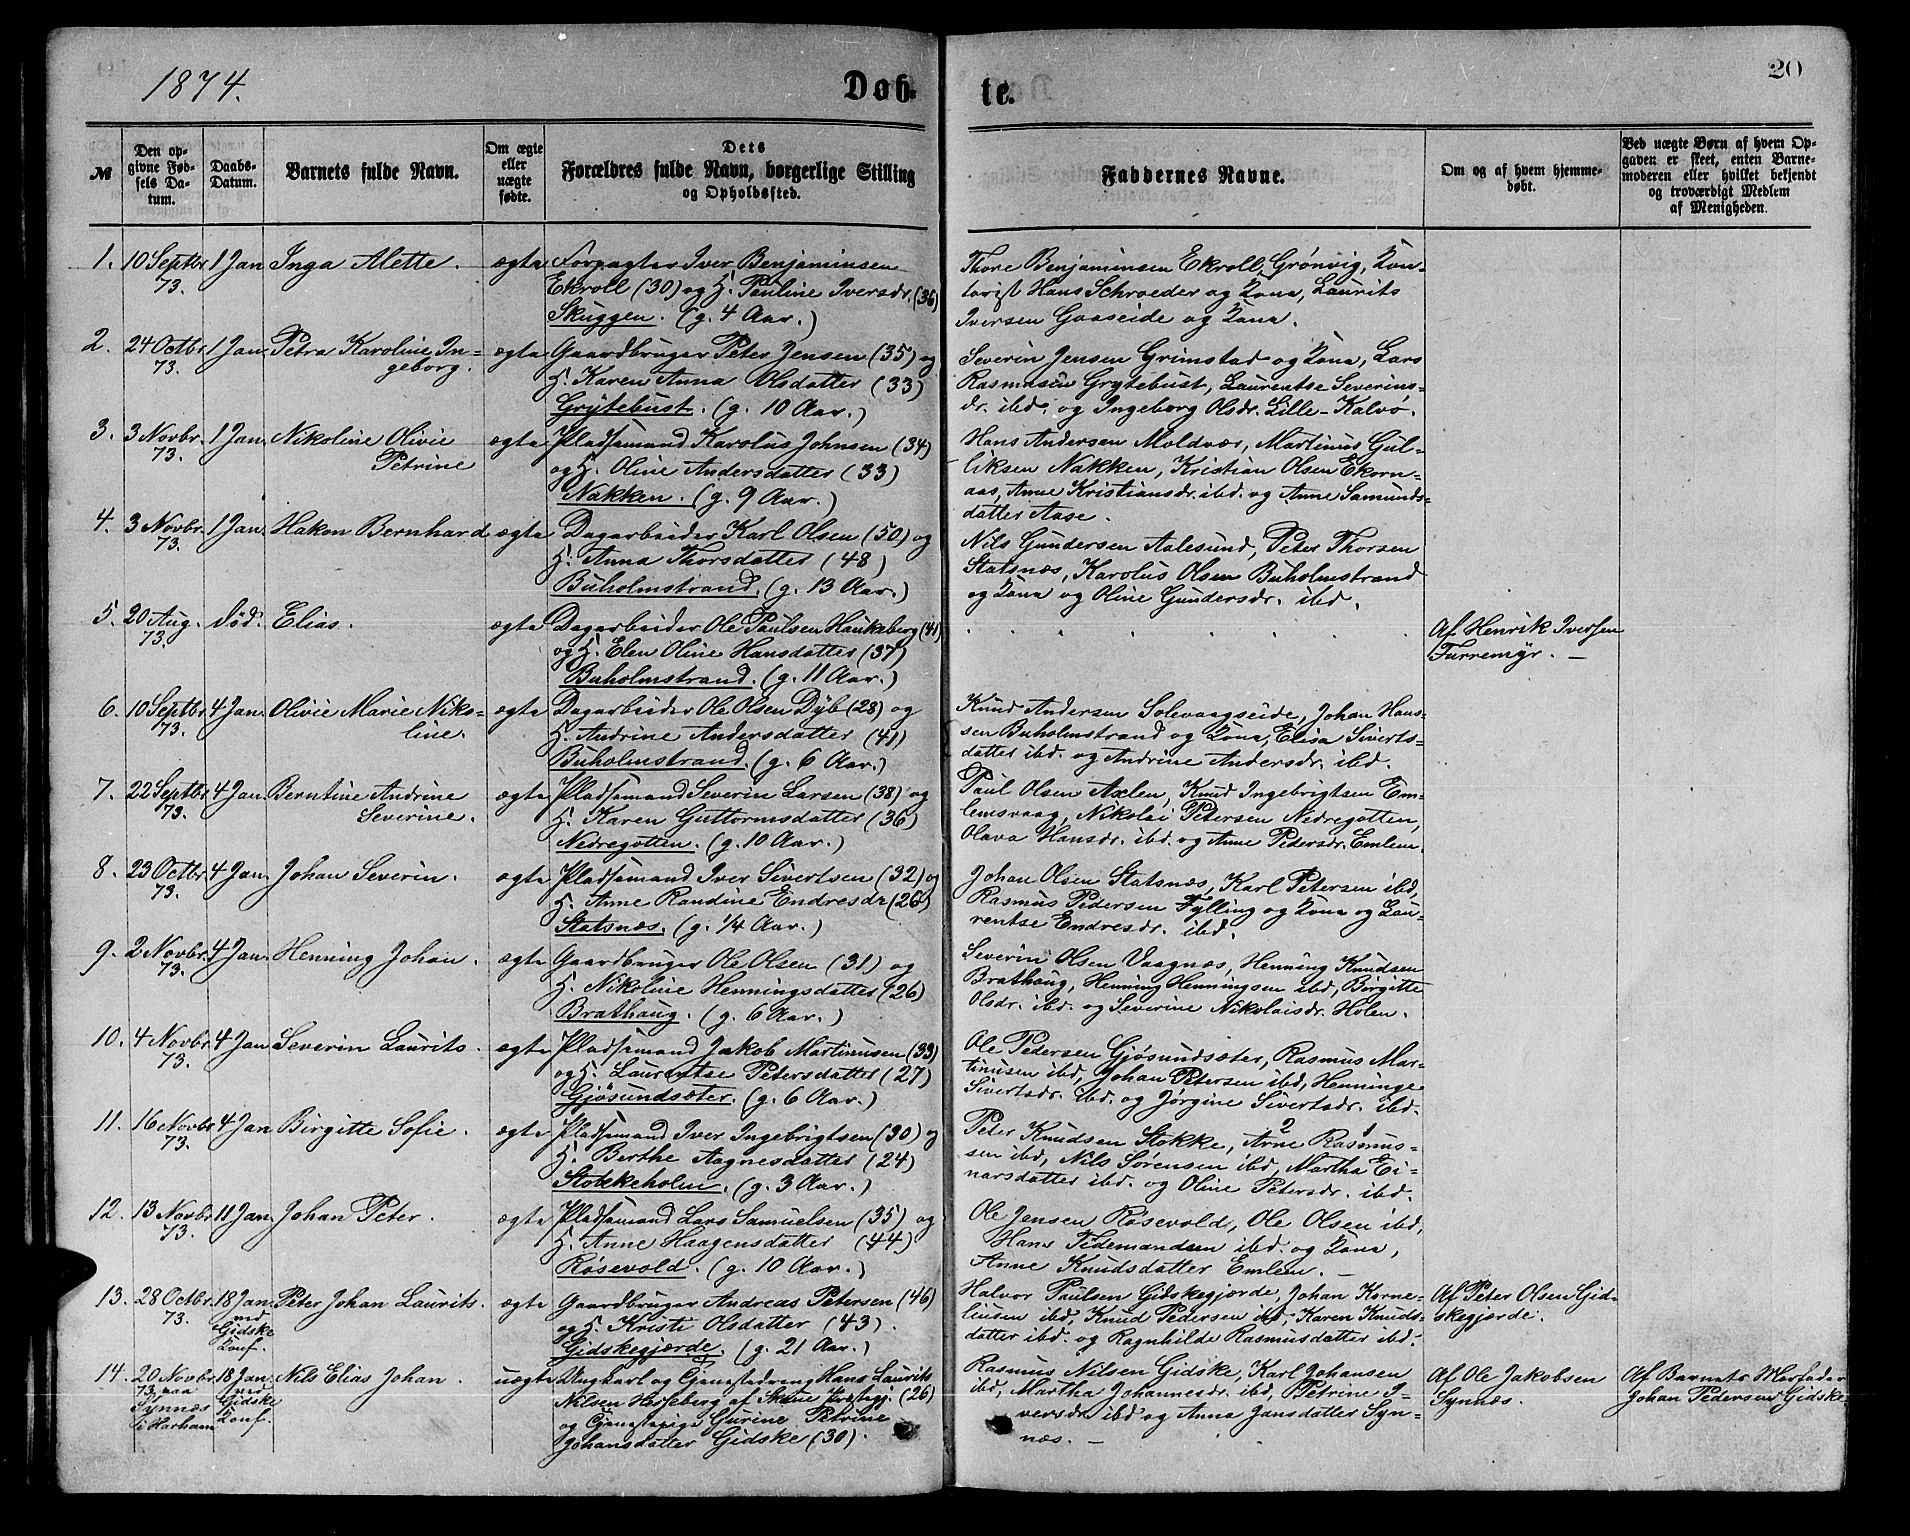 1874.
Døb-
te.
20
№
Den op-
givne Fød-
sels Da-
tum.
Daabs-
Datum.
Barnets fulde Navn.
Om ægte
eller
uægte
fødte.
Dets
Forældres fulde Navn, borgerlige Stilling
og Opholdssted.
Faddernes Navne.
Om og af hvem hjemme-
døbt.
Ved uægte Børn af hvem Op-
gaven er skeet, enten Barne-
moderen eller hvilket bekjendt
og troværdigt Medlem
af Menigheden.
1. 10 Septbr 1 Jan Inga Alette. ægte Forpagter Iver Benjaminsen
73. Ekroll (30) og H. Pauline Iversdr. (36)
Skuggen. (g. 4 Aar.)
Thore Benjaminsen Ekroll, Grönvig, Kon-
torist Hans Schroeder og Kona, Laurits
Iversen Gaaseide og Kona.
2. 24 Octbr. 1 Jan. Petra Karoline In- ægte Gaardbruger Peter Jensen (35) og
73. geborg. H. Karen Anna Olsdatter (33)
Grytebust. (g. 10 Aar.)
Severin Jensen Grimstad og Kona, Lars
Rasmusen Grytebust, Laurentse Severins-
dr. ibd. og Ingeborg Olsdr. Lille-Kalvø.
3. 3 Novbr. 1 Jan. Nikoline Olivie ægte Pladsemand Karolus Johnsen (34)
73. Petrine og H. Oline Andersdatter (33)
Nakken. (g. 9 Aar.)
Hans Andersen Moldvær, Martinus Gul-
liksen Nakken, Kristian Olsen Ekorn-
aas, Anne Kristiansdr. ibd. og Anne Samunds-
datter Aase.
4. 3 Novbr. 1 Jan. Hakon Bernhard ægte Dagarbeider Karl Olsen (50) og
73. H. Anna Thorsdatter (48)
Buholmstrand. (g. 13 Aar.)
Nils Gundersen Aalesund, Peter Thorsen
Statsnæs, Karolus Olsen Buholmstrand
og Kona og Oline Gundersdr. ibd.
5. 20 Aug. død. Elias. ægte Dagarbeider Ole Paulsen Haukeberg (41)
73. og H. Elen Oline Hansdatter (37)
Buholmstrand. (g. 11 Aar.)
Af Henrik Iversen
Furremyr. —
6. 10 Septbr 4 Jan. Olivie Marie Niko- ægte Dagarbeider Ole Olsen Dyb (28) og
73. line. H. Andrine Andersdatter (41)
Buholmstrand. (g. 6 Aar.)
Knud Andersen Solevaagseide, Johan Han-
sen Buholmstrand og Kona, Elisa Siverts-
datter ibd. og Andrine Andersdr. ibd.
7. 22 Septbr 4 Jan. Berntine Andrine ægte Pladsemand Severin Larsen (38) og
73. Severine. H. Karen Guttormsdatter (36)
Nedregotten. (g. 10 Aar.)
Paul Olsen Axlen, Knud Ingebrigtsen Em-
lemsvaag, Nikolai Petersen Nedregotten,
Olava Hansdr. ibd. og Anne Pedersdr. Emlem.
8. 23 Octbr. 4 Jan. Johan Severin. ægte Pladsemand Iver Sivertsen (32) og
73. H. Anne Randine Endresdr (26)
Statsnæs. (g. 1/4 Aar.)
Johan Olsen Statsnæs, Karl Petersen ibd,
Rasmus Pedersen Fylling og Kona og Lau-
rentse Endresdr. ibd.
9. 2 Novbr. 4 Jan. Henning Johan. ægte Gaardbruger Ole Olsen (31) og
73. H. Nikoline Henningsdatter (26)
Brathaug. (g. 6 Aar.)
Severin Olsen Vaagnæs, Henning Knudsen
Brathaug, Henning Henningsen ibd, Birgitte
Olsdr. ibd. og Severine Nikolaisdr. Holen.
10. 4 Novbr. 4 Jan Severin Laurits. ægte Pladsemand Jakob Martinusen (33)
73. og H. Laurentse Petersdatter (27)
Gjøsundsæter. (g. 6 Aar.)
Ole Pedersen Gjøsundsæter, Rasmus Mar-
tinusen ibd, Johan Petersen ibd, Henninge
Sivertsdr. ibd. og Jørgine Sivertsdr. ibd.
11. 16 Novbr 4 Jan Birgitte Sofie. ægte Pladsemand Iver Ingebrigtsen (30) og
73. H. Berthe Aagnesdatter (24)
Stokkeholm. (g. 3 Aar.)
Peter Knudsen Stokke, Arne Rasmus-
sen ibd, Nils Sørensen ibd, Martha Ei-
narsdatter ibd. og Oline Petersdr. ibd.
12. 13 Novbr 11 Jan. Johan Peter. ægte Pladsemand Lars Samuelsen (35) og
73. H. Anne Haagensdatter (44)
Røsevold. (g. 10 Aar.)
Ole Jensen Røsevold, Ole Olsen ibd,
Hans Tidemandsen ibd. og Kona,
Anne Knudsdatter Emlem. —
13. 28 Octbr. 18 Jan. Peter Johan Laurits. ægte Gaardbruger Andreas Petersen (46)
73. ved Gidske Konf. og H. Kristi Olsdatter (43).
Gidskegjærde. (g. 21 Aar.)
Halvor Paulsen Gidskegjærde, Johan Korne-
liusen ibd, Knud Pedersen ibd, Karen Knuds-
datter ibd. og Ragnhilde Rasmusdatter ibd.
Af Peter Olsen Gid-
skegjærde.
14. 20 Novbr. 18 Jan. Nils Elias Johan. uægte Ungkarl og Tjenestedreng Hans Laurits
73. paa Synnæs i Harham ved Gidske Konf. Nilsen Hesseberg (26)
og Tjenestepige Gurine Petrine
Johansdatter Gidske (30).
Rasmus Nilsen Gidske, Karl Johansen
ibd, Martha Johannesdr. ibd, Petrine I-
versdr. ibd og Anna Jansdatter Syn-
næs. —
Af Ole Jakobsen
Synnæs.
Af Barnets Morfader
Johan Pedersen Gidske